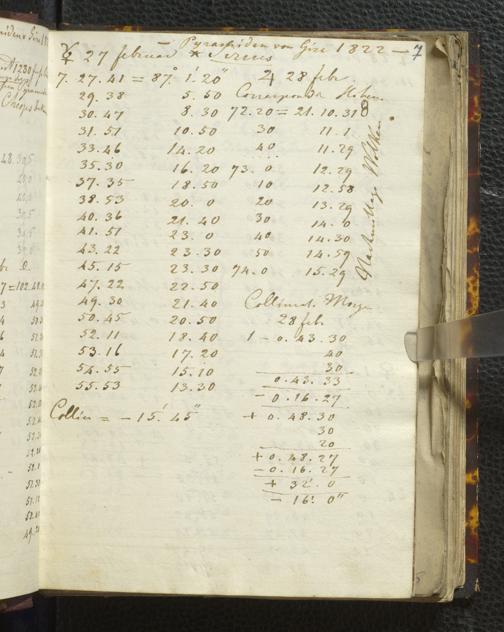 Pyramiden von Gize 1822 — 7
☿ 27 februar * Sirius
7. 27. 41 = 87° 1. 20"
29. 38 5. 50
30. 47 8. 30
31. 51 10. 50
33. 46 14. 20
35. 30 16. 20
37. 35 18. 50
38. 53 20. 0
40. 36 21. 40
41. 51 23. 0
43. 22 23. 30
45. 15 23. 30
47. 22 22. 50
49. 30 21. 40
50. 45 20. 50
52. 11 18. 40
53. 16 17. 20
54. 55 15. 10
55. 53 13. 30
Collim = - 15' 45"
♃ 28 feb.
Correspond. Höhen
72. 20 = 21. 10. 31
30 11. 1
40 11. 29
73. 0 12. 29
10 12. 58
20 13. 29
30 14. 0
40 14. 30
50 14. 59
74. 0 15. 29
Nachmittags Wolken
Collimat. Morg.
28 feb.
1 - 0. 43. 30
40
30
0. 43. 33
- 0. 16. 27
+ 0. 48. 30
30
20
+ 0. 48. 27
- 0. 16. 27
+ 32. 0
- 16' 0"